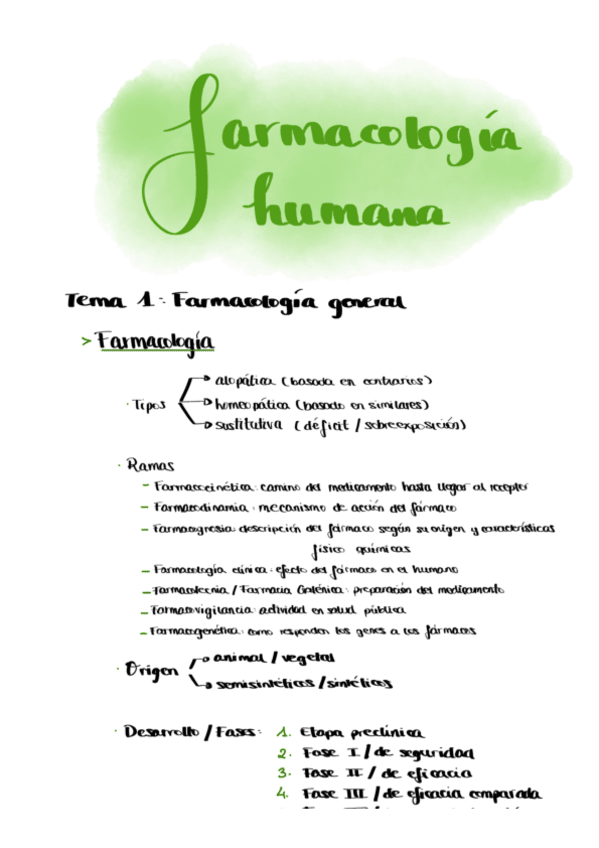 farmacología
humana
Tema 1: Farmacología general
> Farmacología
· Tipos
alopática (basada en contrarios)
homeopática (basado en similares)
sustitutiva (déficit / sobreexposición)
· Ramas
- Farmacocinética: camino del medicamento hasta llegar al receptor
- Farmacodinamia: mecanismo de acción del fármaco
- Farmacognesia: descripción del fármaco según su origen y características
físico químicas
- Farmacología clínica: efecto del fármaco en el humano
- Farmacotecnia / Farmacia Galénica: preparación del medicamento
- Farmacovigilancia: actividad en salud pública
- Farmacogenética: como responden los genes a los fármacos
· Origen
animal / vegetal
semisintéticos / sintéticos
· Desarrollo / Fases: 1. Etapa preclínica
2. Fase I / de seguridad
3. Fase II / de eficacia
4. Fase III / de eficacia comparada